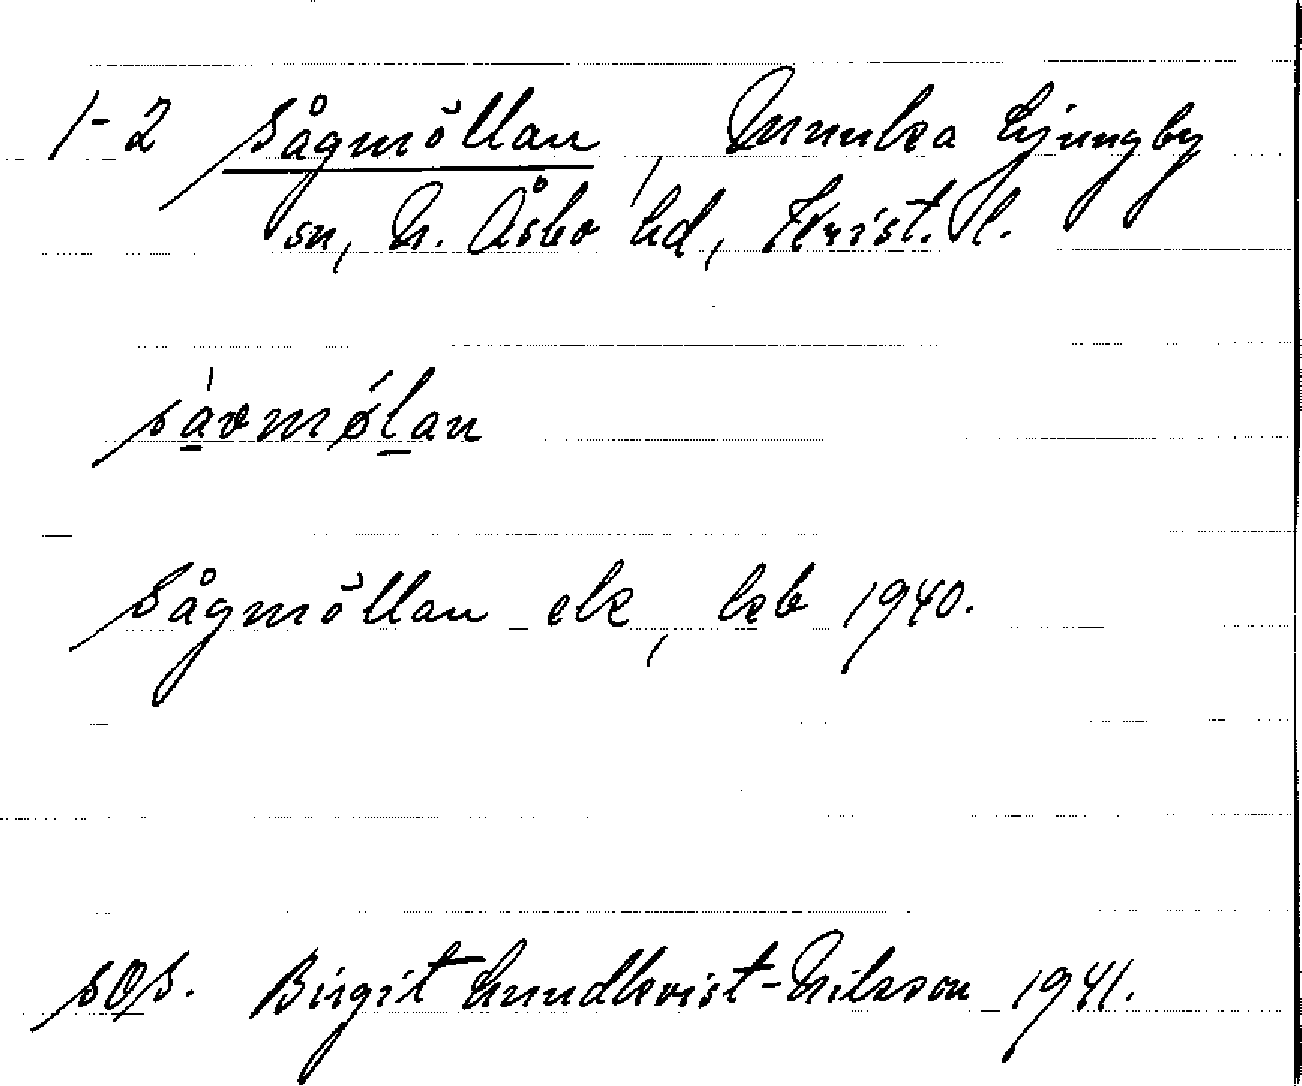 1-2 Sågmöllan, Munka Ljungby
sn, N. Åsbo hd, Krist. l.
såvmølan
Sågmöllan ek, kb 1940.
Birgit Lundkvist-Nilsson 1941.